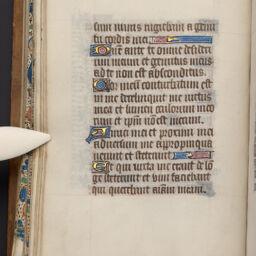 sum nimis rugiebam a gemi
tu cordis mei
Dñe ante te omne desideri
um meum et gemitus meus
a te non est absconditus.
Cor meū conturbatum est
in me dereliquit me uirtus
mea et lumen oculorum meo
rum et ipm̄ nō est mecum.
Amici mei et proximi mei
aduersum me apropinqua
uerunt et steterunt
Et qui iuxta me erant de lō
ge steterunt et uim faciebant
qui querebant aīam meam.